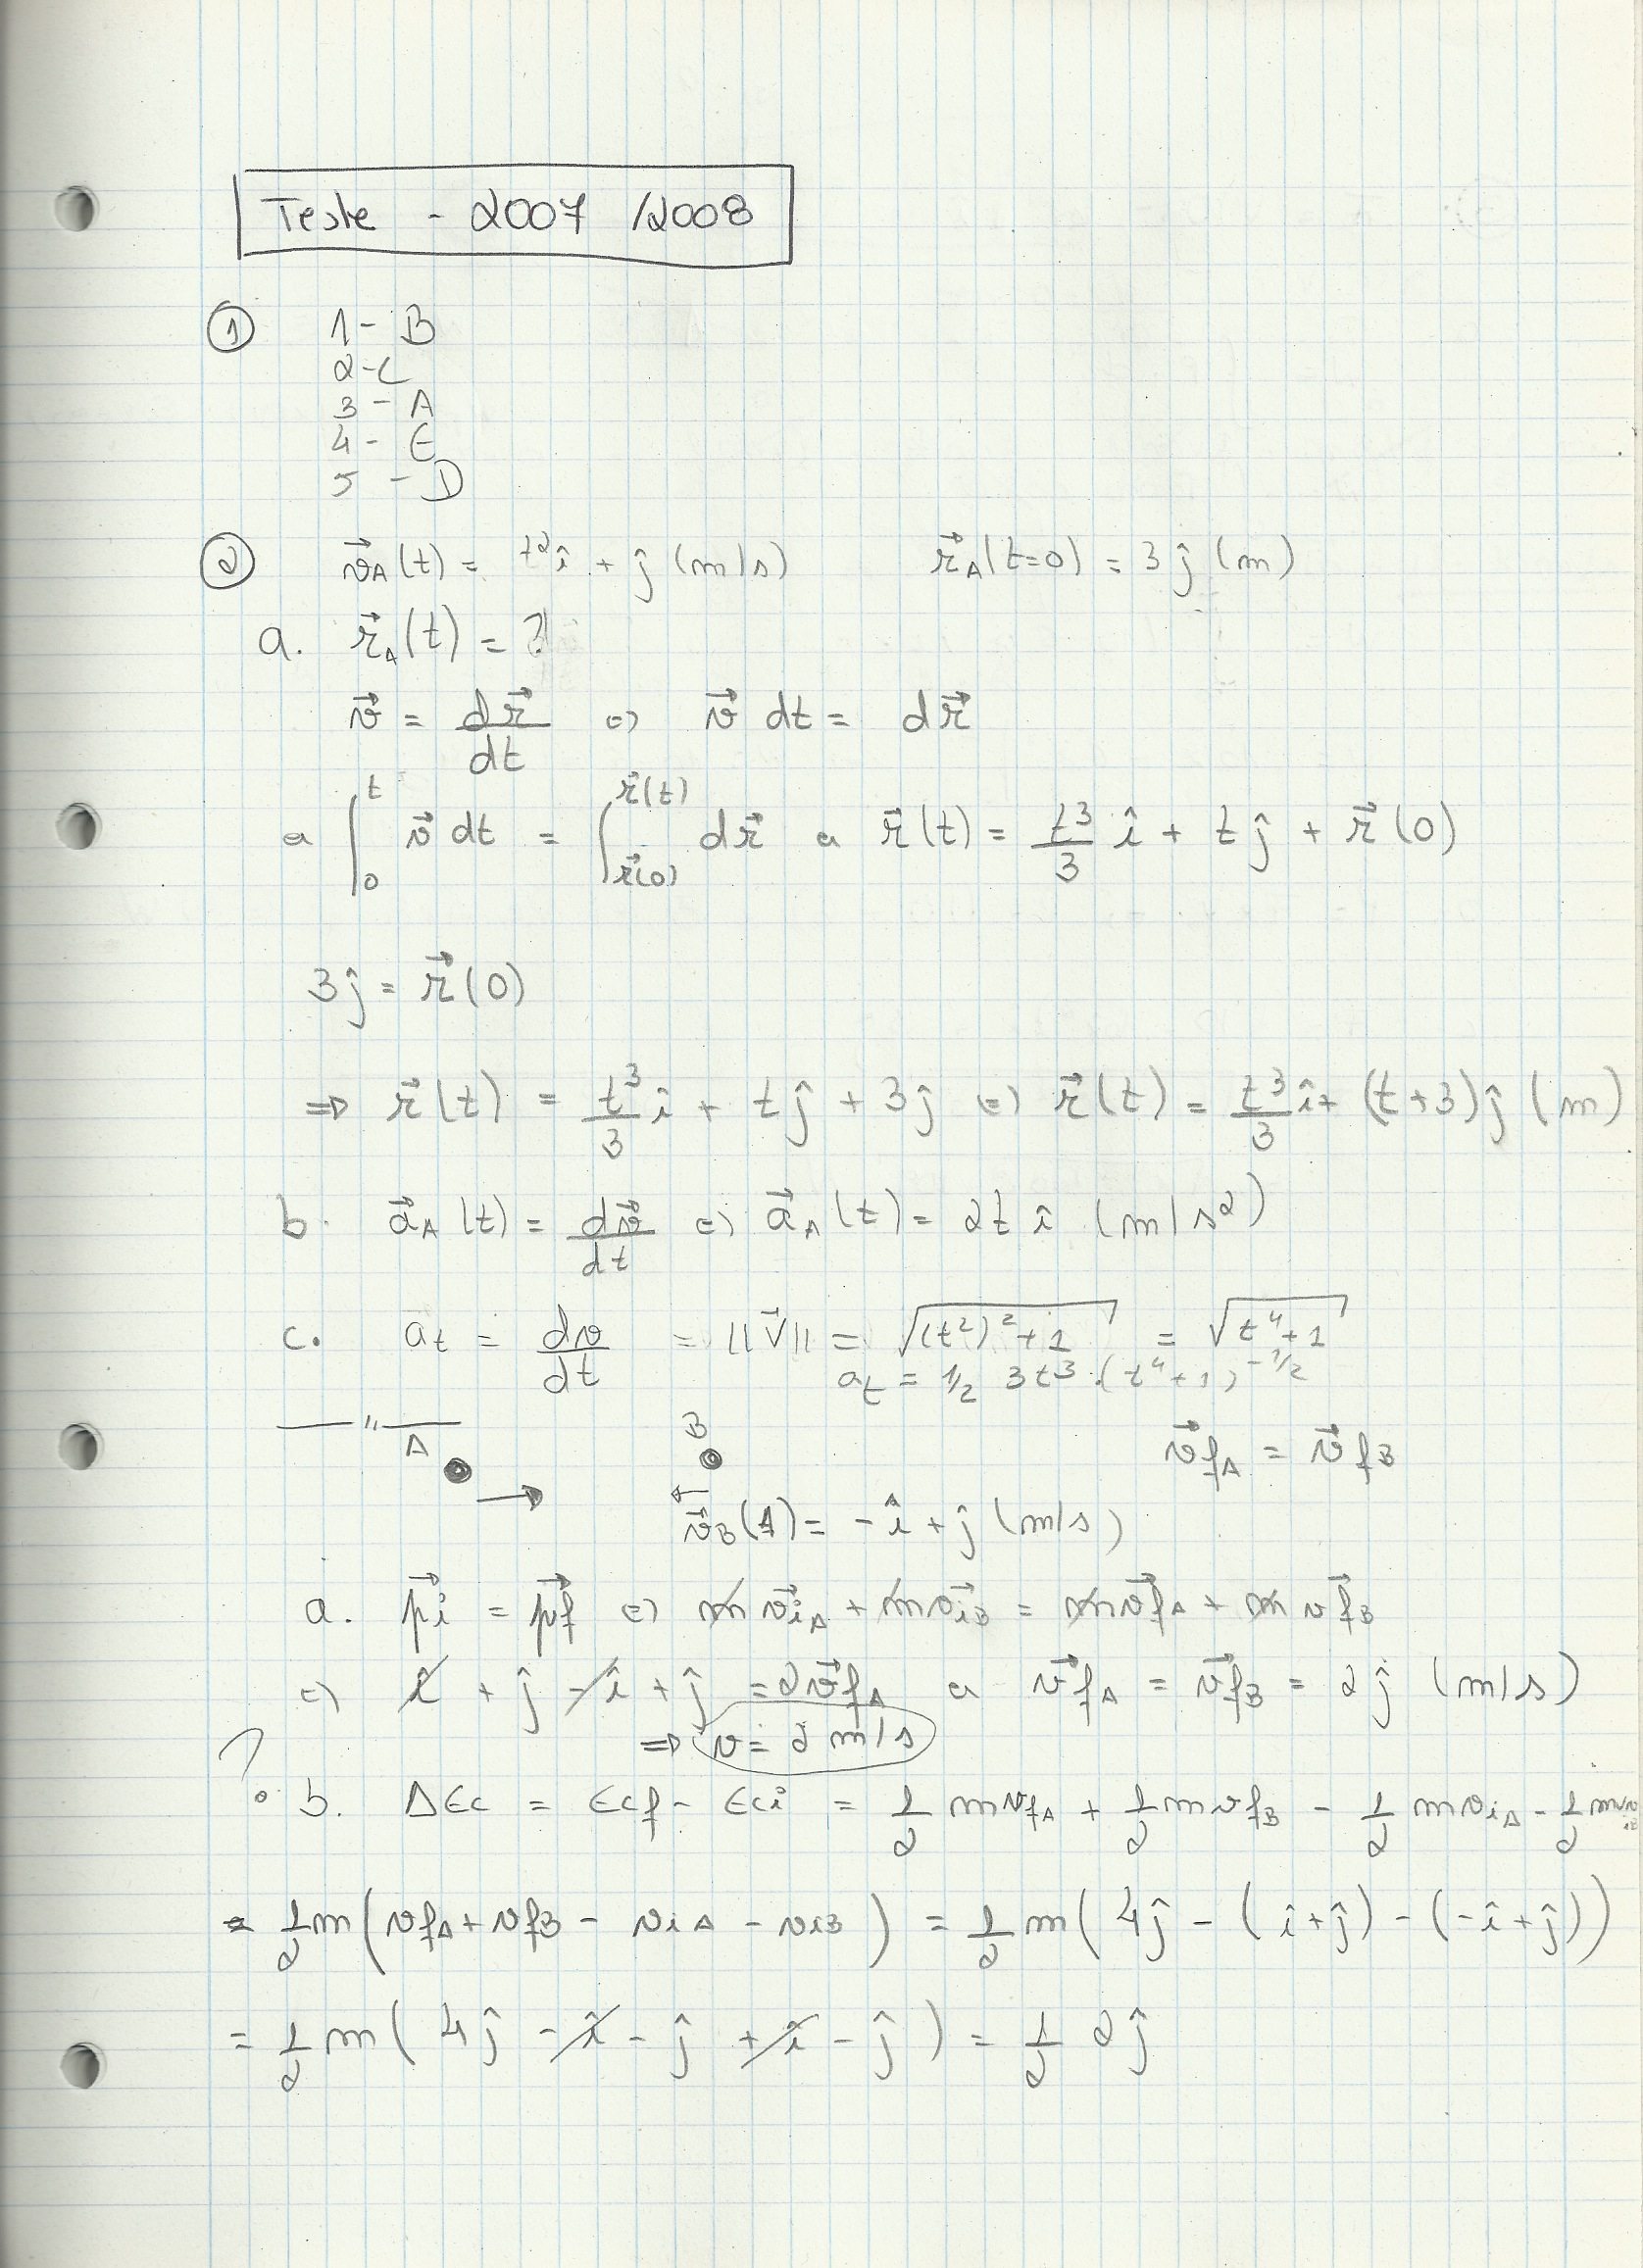 Teste - 2007 /2008
① 1 - B
2 - C
3 - A
4 - E
5 - D
② v⃗A(t) = t² î + ĵ (m/s) r⃗A(t=0) = 3ĵ (m)
a. r⃗A(t) = ?
v⃗ = dr⃗/dt ⇔ v⃗ dt = dr⃗
⇔ ∫₀ᵗ v⃗ dt = ∫_{r⃗(0)}^{r⃗(t)} dr⃗ ⇔ r⃗(t) = t³/3 î + tĵ + r⃗(0)
3ĵ = r⃗(0)
⇒ r⃗(t) = t³/3 î + tĵ + 3ĵ ⇔ r⃗(t) = t³/3 î + (t+3)ĵ (m)
b. a⃗A(t) = dv⃗/dt ⇔ a⃗A(t) = 2t î (m/s²)
c. at = dv/dt = ||v⃗|| = √((t²)²+1) = √(t⁴+1)
at = 1/2 3t³ . (t⁴+1)^(-1/2)
—— " ——
A B v⃗fA = v⃗fB
v⃗B(1) = -î + ĵ (m/s)
a. p⃗i = p⃗f ⇔ m v⃗iA + m v⃗iB = m v⃗fA + m v⃗fB
⇔ î + ĵ - î + ĵ = 2v⃗fA ⇔ v⃗fA = v⃗fB = 2ĵ (m/s)
⇒ v = 2 m/s
? b. ΔEc = Ecf - Eci = 1/2 m vfA + 1/2 m vfB - 1/2 m viA - 1/2 m viB
= 1/2 m (vfA + vfB - viA - viB) = 1/2 m (4ĵ - (î+ĵ) - (-î+ĵ))
= 1/2 m (4ĵ - î - ĵ + î - ĵ) = 1/2 2ĵ